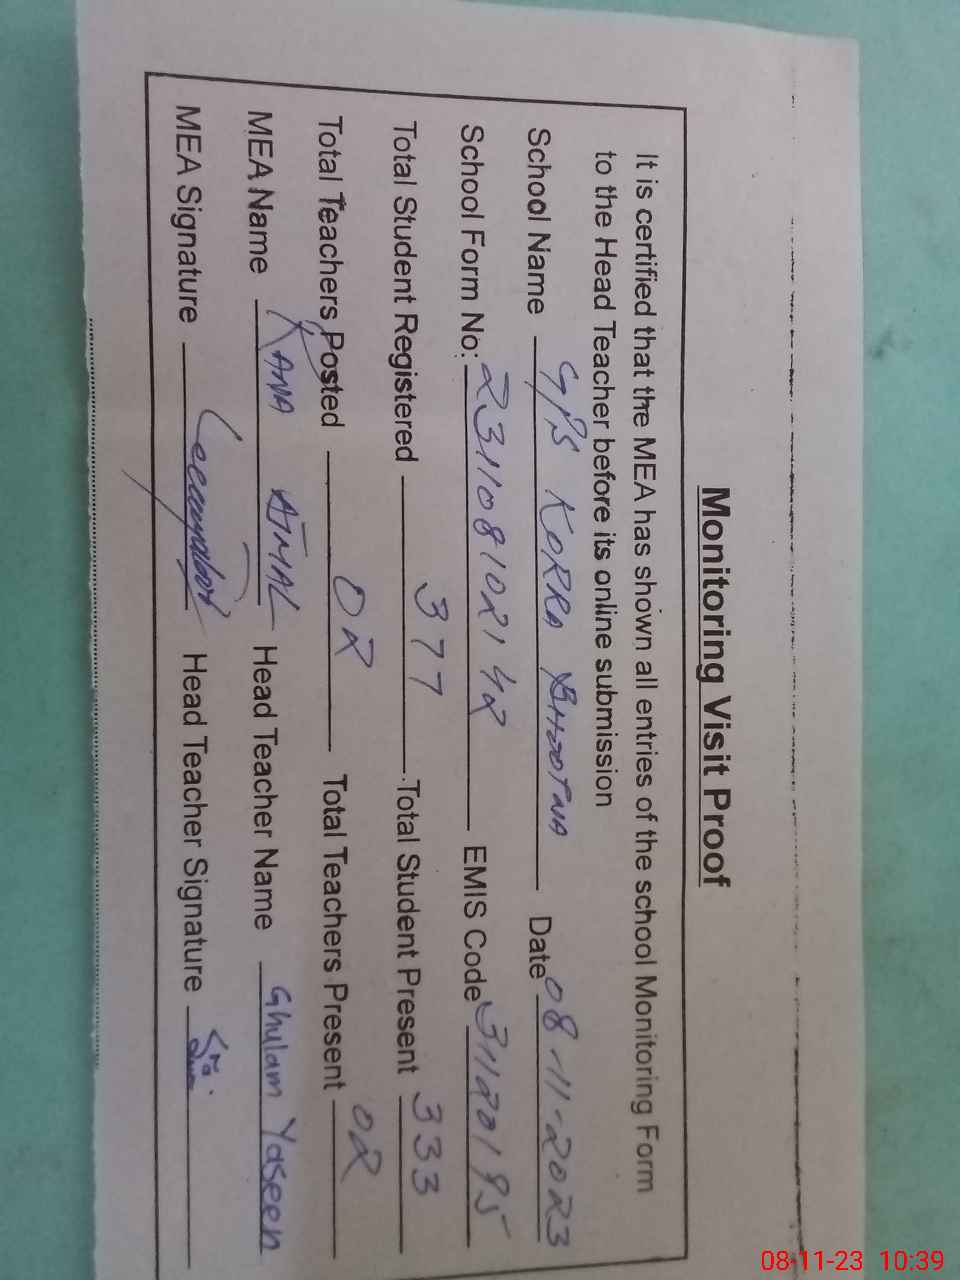 Monitoring Visit Proof
It is certified that the MEA has shown all entries of the school Monitoring Form
to the Head Teacher before its online submission
School Name GPS KORRA BHOOTNA Date 08-11-2023
School Form No: 231108102142 EMIS Code 31120195
Total Student Registered 377 Total Student Present 333
Total Teachers Posted 02 Total Teachers Present 02
MEA Name RANA AJMAL Head Teacher Name Ghulam Yaseen
MEA Signature Head Teacher Signature
08-11-23 10:39